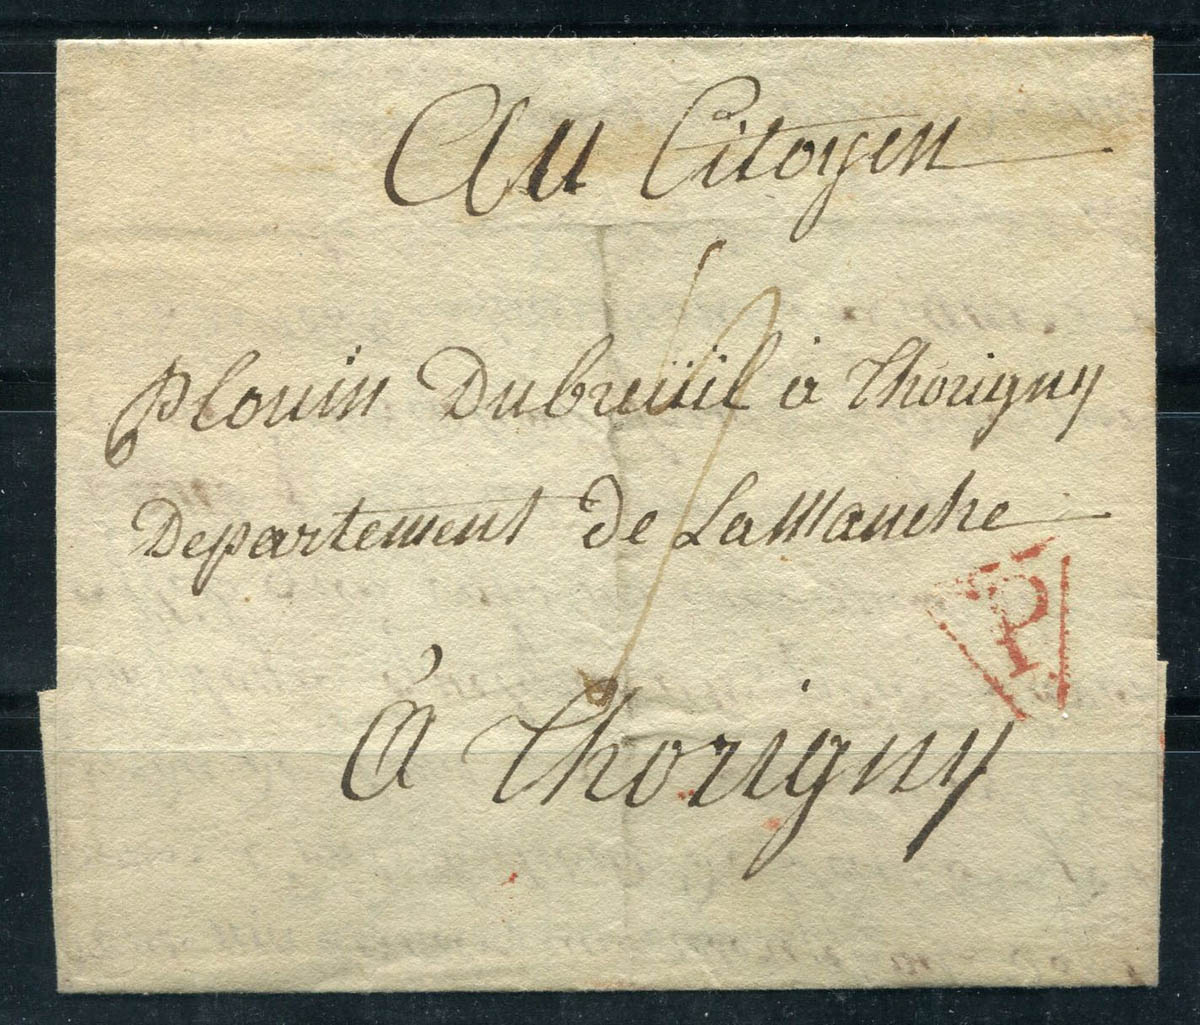 Au Citoyen
Plouin Dubreüil à Thorigny
Departement de La Manche
P
à Thorigny